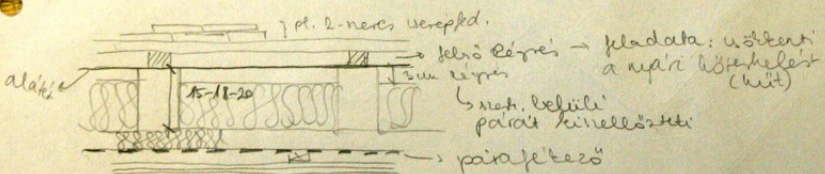 pl. 2-neres cserépfed.
felső légrés → feladata: csökkenti
a nyári hőterhelést
(hűt)
alátét
3 cm légrés
15-18-20
szerk. belüli
párát kiszellőzteti
párafékező